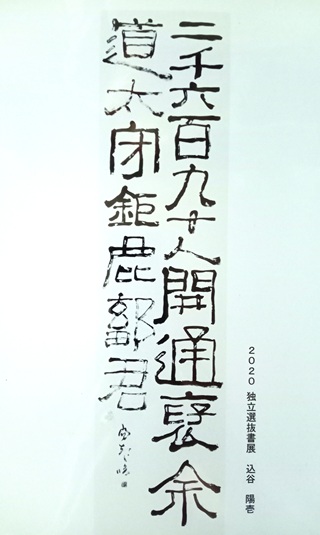 二千六百九十人開通褒余
道太守鉅鹿鄐君
2020 独立選抜書展 込谷 陽壱